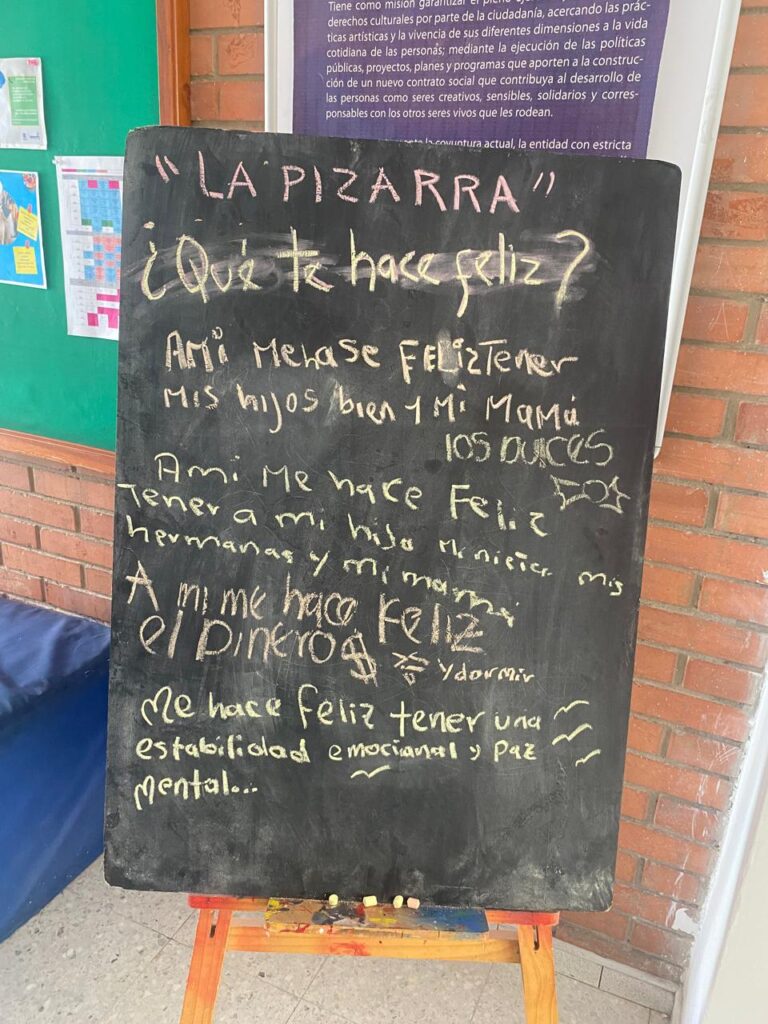 Tiene como misión garantizar el pleno
derechos culturales por parte de la ciudadanía, acercando las prác-
ticas artísticas y la vivencia de sus diferentes dimensiones a la vida
cotidiana de las personas; mediante la ejecución de las políticas
públicas, proyectos, planes y programas que aporten a la construc-
ción de un nuevo contrato social que contribuya al desarrollo de
las personas como seres creativos, sensibles, solidarios y corres-
ponsables con los otros seres vivos que les rodean.
la coyuntura actual, la entidad con estricta
"LA PIZARRA"
¿Qué te hace feliz?
AMi Mehase FELIZTener
Mis hijos bien y Mi MaMá
los DULCES
AMi Me hace Feliz
Tener a mi hijo Mi nieta mis
hermanas y mi mamá
A mi me hace FeLIZ
el DiNERO $ y dormir
Me hace Feliz tener una
estabilidad emocianal y paz
Mental...